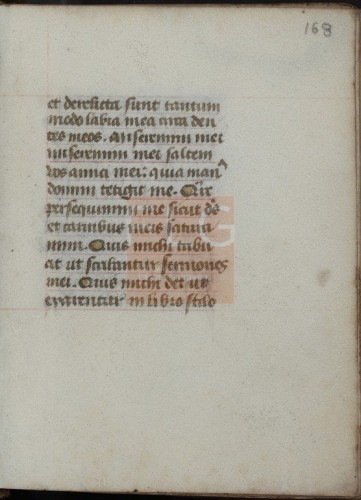 168
et derelicta sunt tantum
modo labia mea circa den
tes meos. Miseremini mei
miseremini mei saltem
vos amici mei: quia man⁹
domini tetigit me. Qure
persequimini me sicut ds̄
et carnibus meis satura
mini. Quis michi tribu
at ut scribantur sermones
mei. Quis michi det ut
exarentur in libro stilo